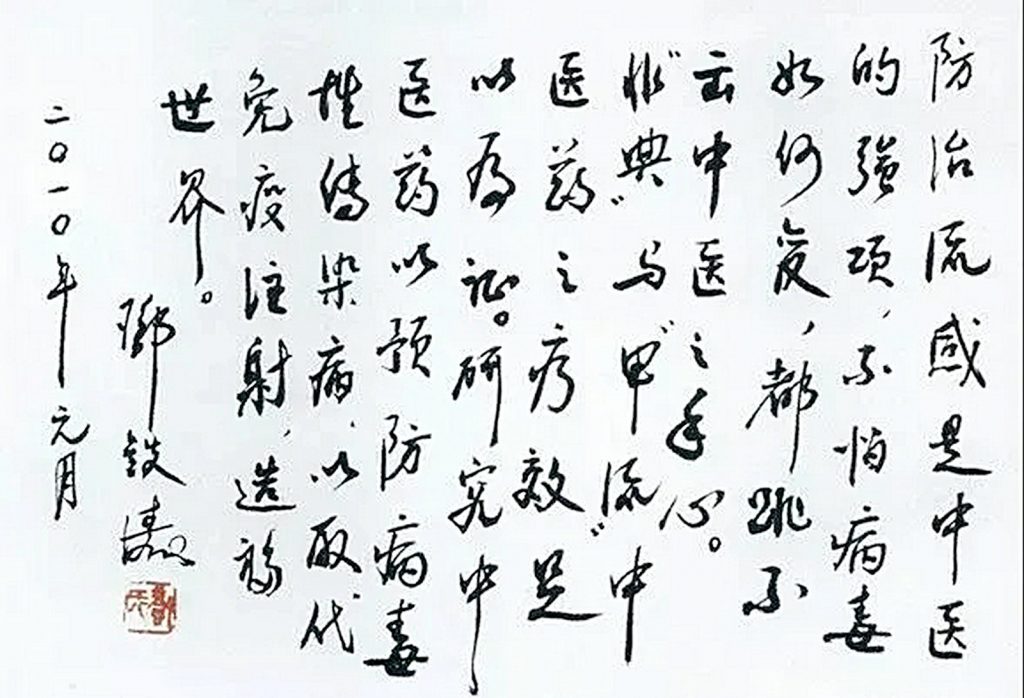 防治流感是中医
的强项,不怕病毒
如何变,都跳不
出中医之手心。
"非典"与"甲流"中
医药之疗效足
以为证。研究中
医药以预防病毒
性传染病,以取代
免疫注射,造福
世界。
邓铁涛
二〇一〇年元月